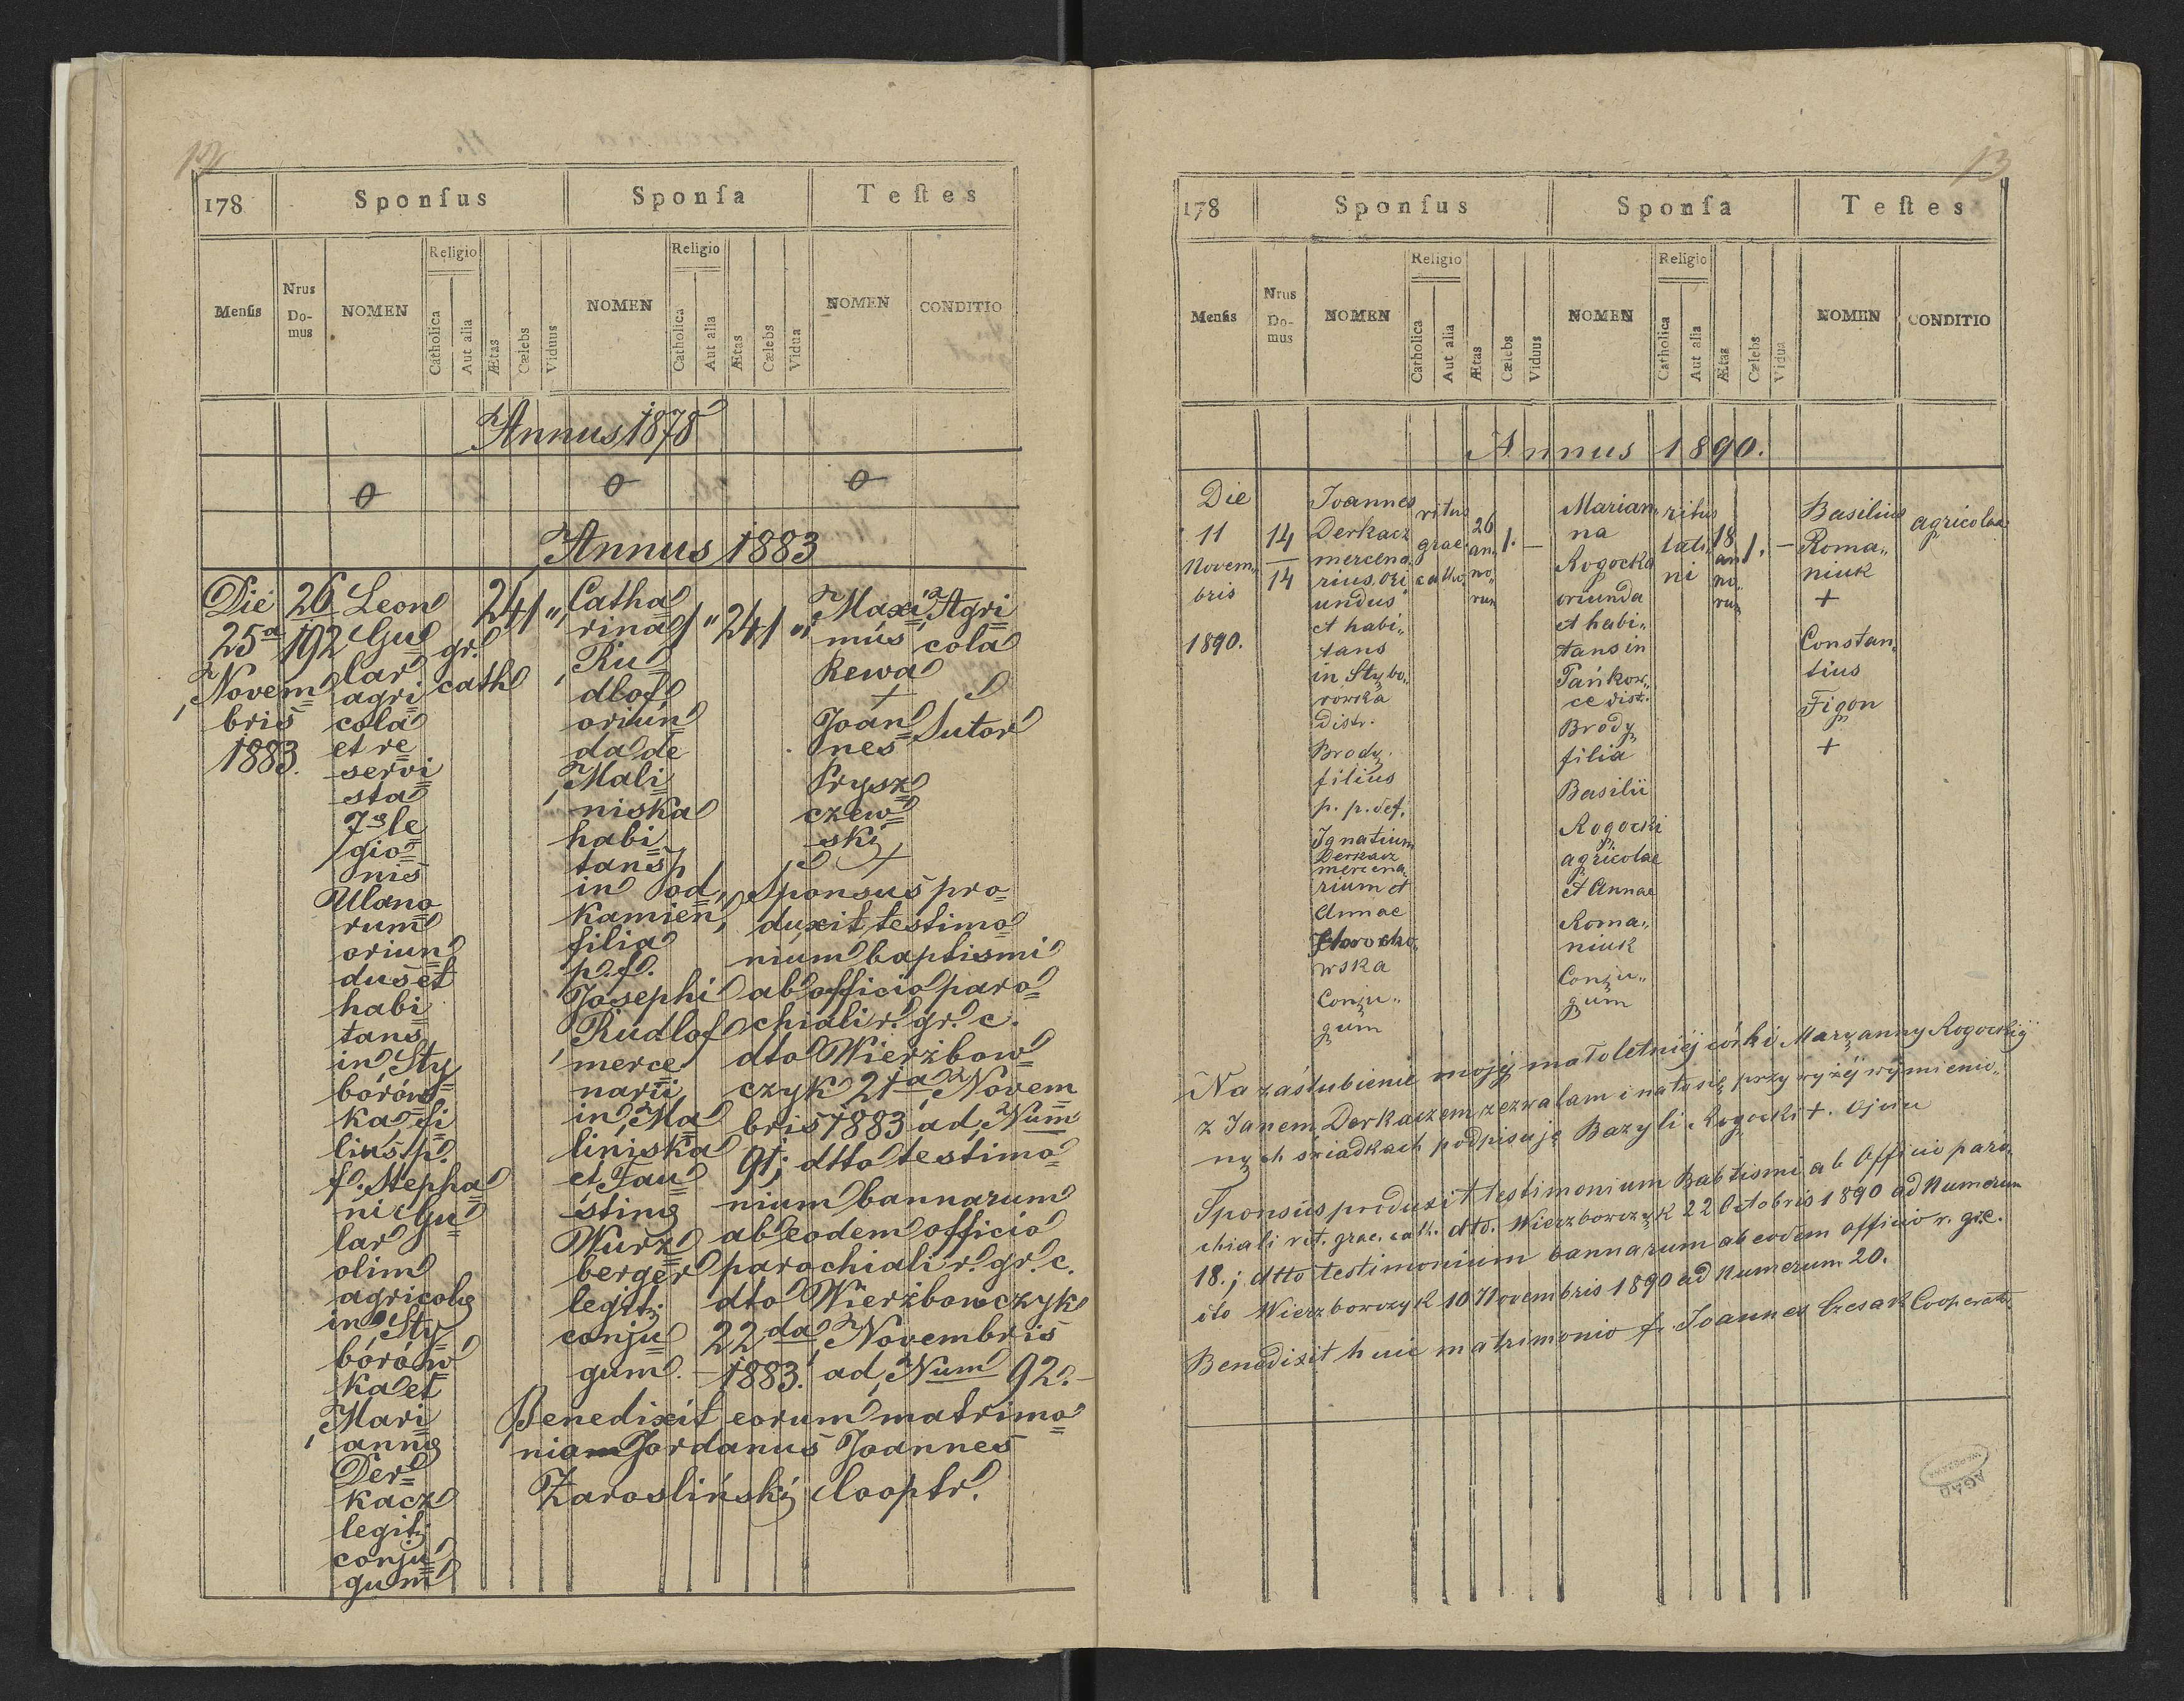 12
178
Sponſus
Sponſa
Teſtes
Menſis
Nrus
Do-
mus
NOMEN
Religio
Catholica
Aut alia
Ætas
Cælebs
Viduus
NOMEN
Religio
Catholica
Aut alia
Ætas
Cælebs
Vidua
NOMEN
CONDITIO
Annus 1878
0 0 0
Annus 1883
Die
25a
Novem=
bris
1883.
26
192
Leon
Gu=
lar
agri=
cola
et re=
servi=
sta
7e le=
gio=
nis
Ulano
rum
oriun
dus et
habi
tans
in Sty
borów=
ka fi
lius p.
f. Stepha
ni Gu=
lar
olim
agricolę
in Sty=
borów=
ka et
Mari
annę
Der=
kacz
legit;
conju=
gum
gr.
cath
24 1 "
Catha
rina
Ru=
dlof
oriun=
da de
Mali=
niska
habi
tans
in Pod=
kamien,
filia
p. f.
Josephi
Rudlof
merce
narii
in Ma=
liniska
et Fau=
stinę
Wurz=
berger
legit;
conju=
gum.
1 " 24 1 "
Maxi
mus
Rewa
+
Joan=
nes
Prysz=
czew=
ski
+
Agri
cola
Sutor
Sponsus pro=
duxit testimo=
nium baptismi
ab officio paro=
chiali r. gr. c.
dto Wierzbow=
czyk 21ja Novem=
bris 1883 ad Num
91; dtto testimo=
nium bannarum
ab eodem officio
parochiali r. gr. c.
dto Wierzbowczyk
22da Novembris
1883. ad Num 92.-
Benedixit eorum matrimo=
nio Jordanus Joannes
Zarosliński Cooptr.
13
178
Sponſus
Sponſa
Teſtes
Menſis
Nrus
Do-
mus
NOMEN
Religio
Catholica
Aut alia
Ætas
Cælebs
Viduus
NOMEN
Religio
Catholica
Aut alia
Ætas
Cælebs
Vidua
NOMEN
CONDITIO
Annus 1890.
Die
11
Novem„
bris
1890.
14
14
Joannes
Derkacz
mercena
rius, ori
undus
et habi„
tans
in Stybo„
rówka
distr.
Brody.
filius
p. p. def.
Ignatium
Derkacz
mercena
rium et
Annae
wska
Conju„
gum
ritus
grae.
catho.
26
an„
no„
rum
1. —
Marian„
na
Rogocka
oriunda
et habi„
tans in
Pańkow„
ce distr.
Brody
filia
Basilii
Rogocki
agricolae
et Annae
Roma„
niuk
Conju„
gum
ritus
lati„
ni
18
an
no„
rum
1. —
Basilius
Roma„
niuk
+
Constan„
tius
Figon
+
agricolae
Na zaślubienie mojéj małoletniéj córki Maryanny Rogockiéj
z Janem Derkaczem zezwalam i na to się przy wyżéj wymienio„
nych świadkach podpisuję Bazyli Rogocki +. Ojciec
Sponsus produxit testimonium Babtismi ab Officio paro„
chiali rit. grae. cath. dto. Wierzbowczyk 22 Octobris 1890 ad Numerum
18.; dtto testimonium bannarum ab eodem officio r. gr. c.
ito Wierzbowczyk 10 Novembris 1890 ad Numerum 20.
Benedixit huic matrimonio f. Joannes Czesak Cooperator
AGAD
WARSZAWA